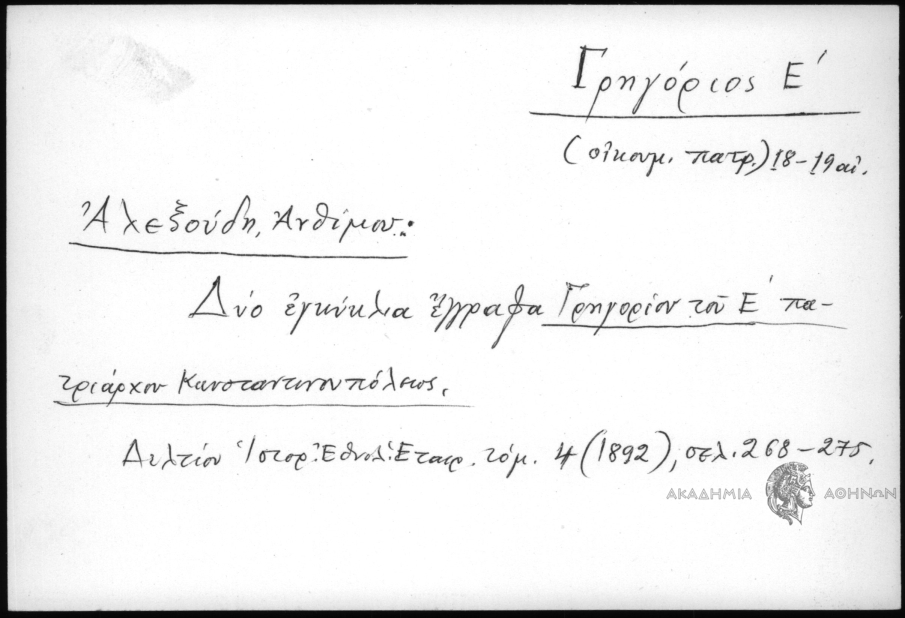 Γρηγόριος Ε΄
(οἰκουμ. πατρ.) 18-19 αἰ.
Ἀλεξούδη, Ἀνθίμου:
Δύο ἐγκύκλια ἔγγραφα Γρηγορίου τοῦ Ε΄ πα-
τριάρχου Κωνσταντινουπόλεως.
Δελτίον Ἱστορ. Ἐθνολ. Ἑταιρ. τόμ. 4 (1892), σελ. 268-275.
ΑΚΑΔΗΜΙΑ ΑΘΗΝΩΝ